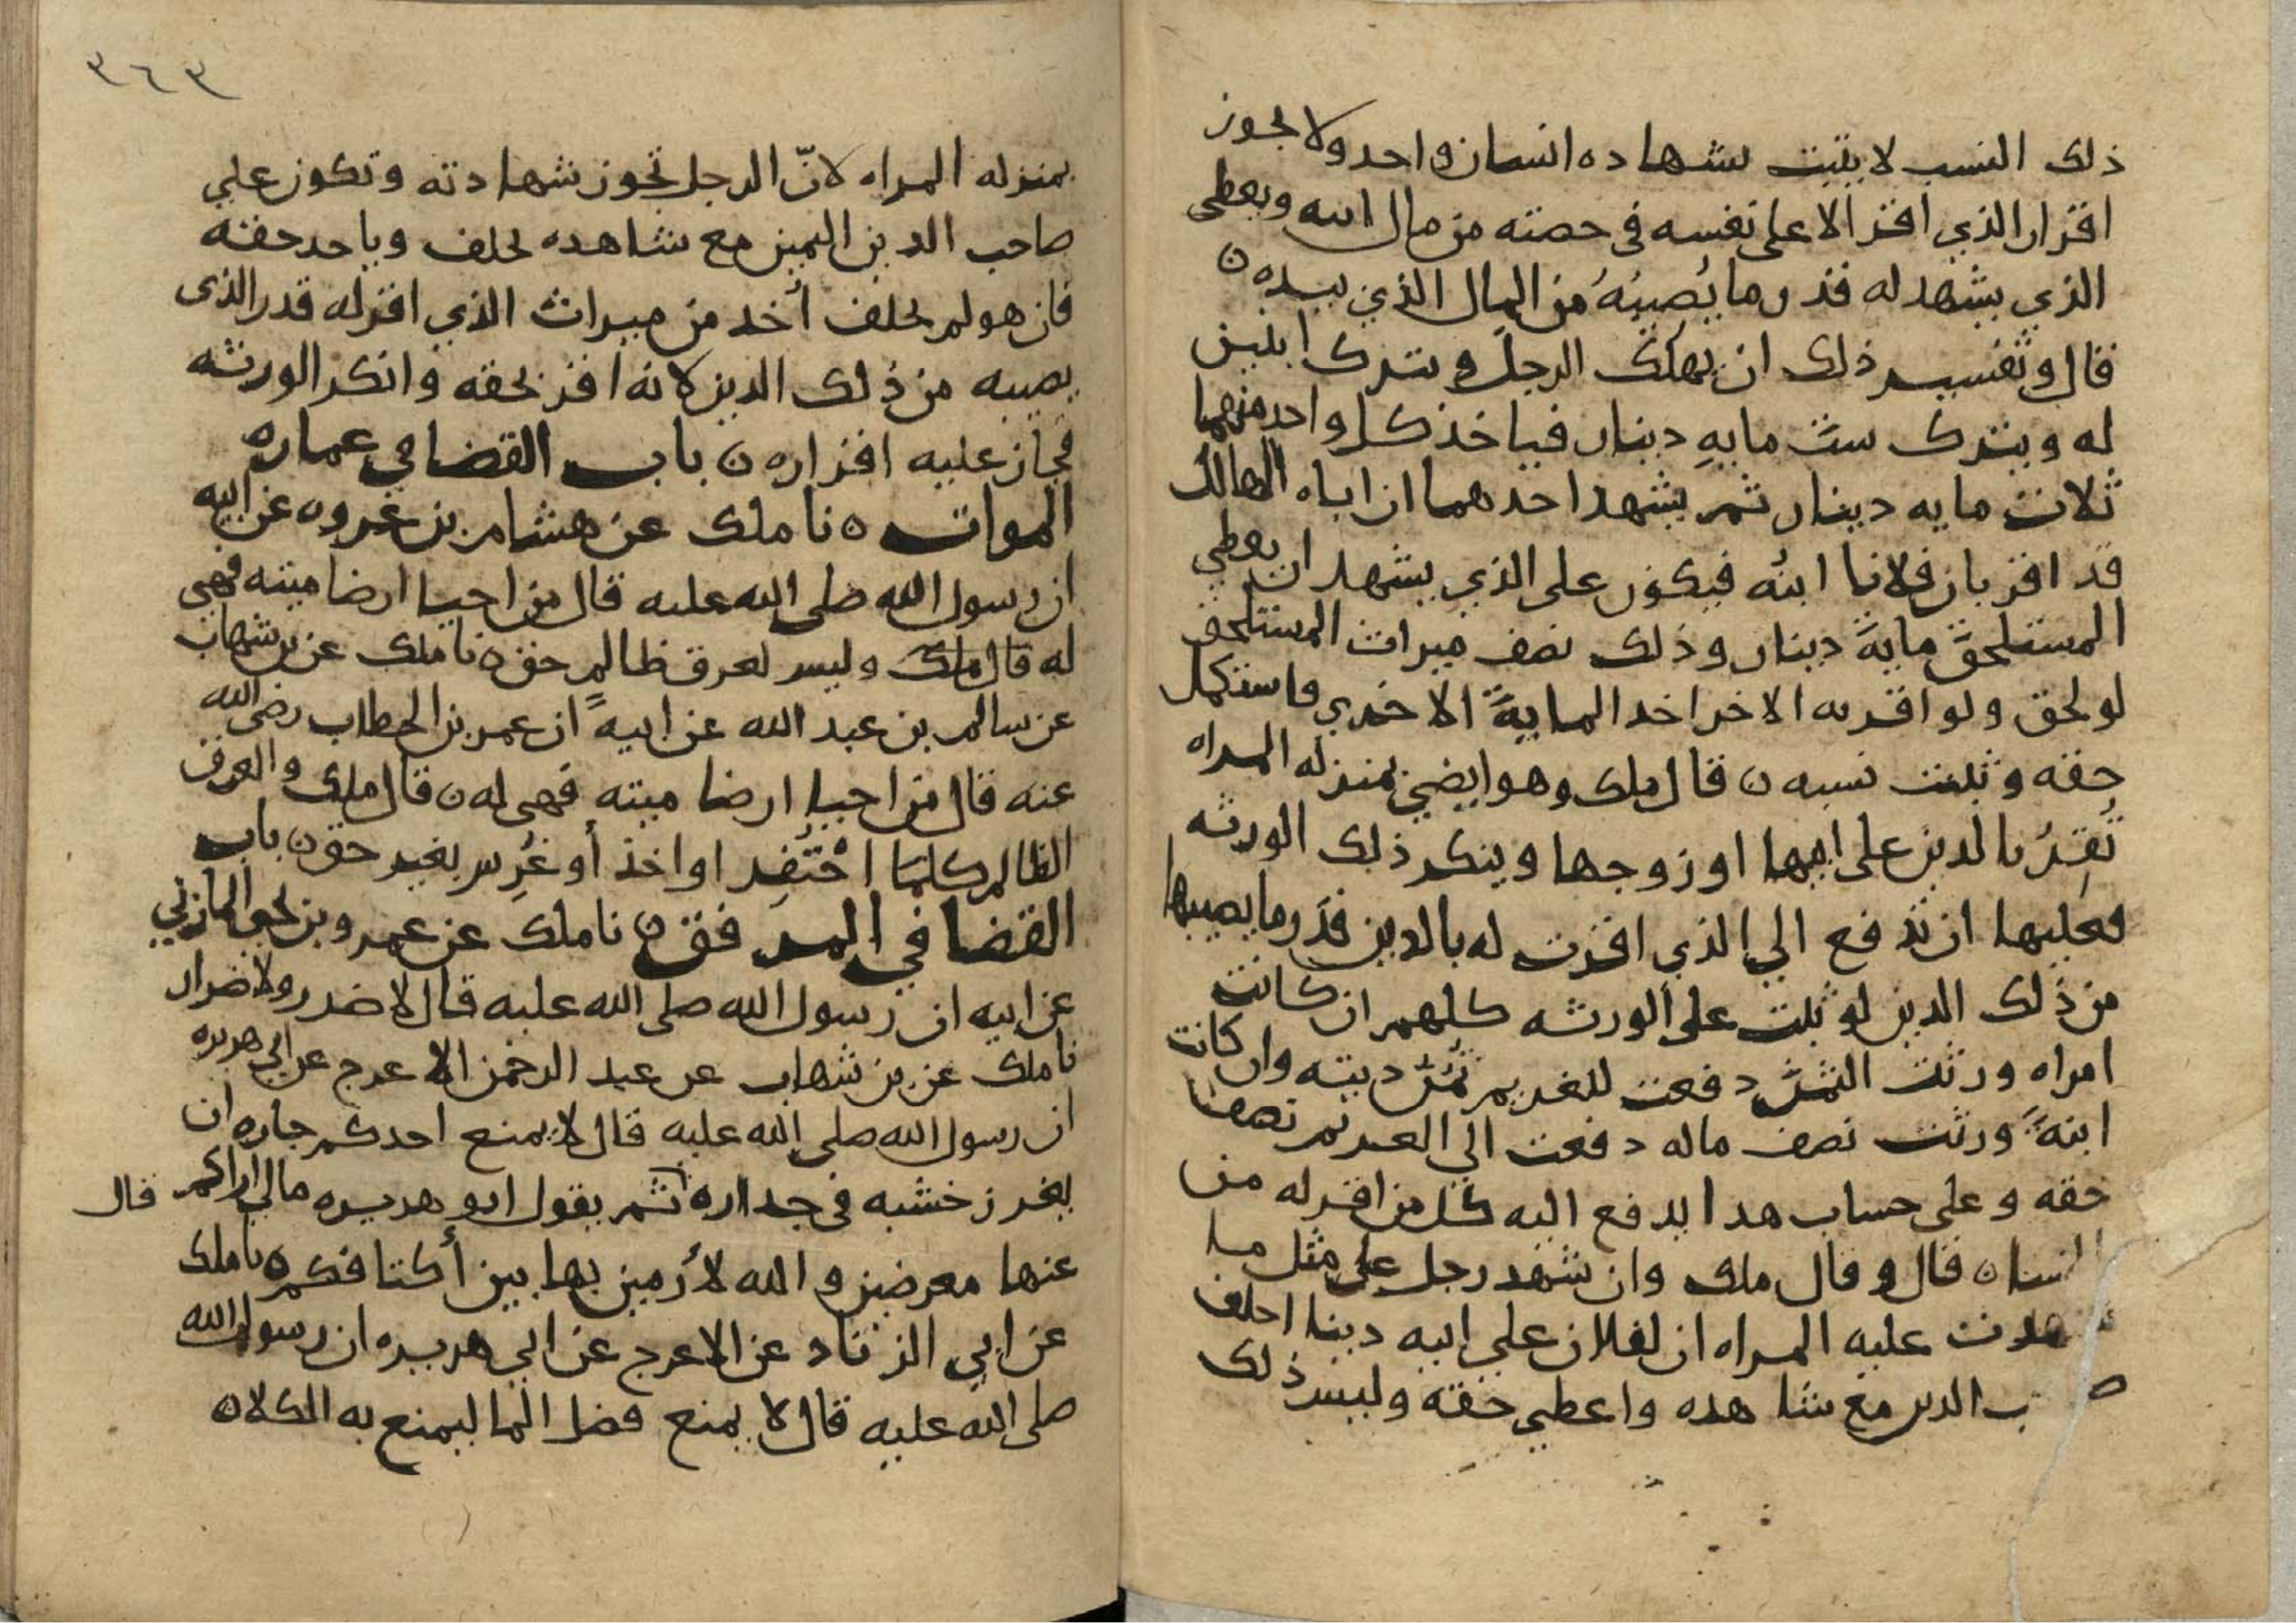 ذلك النسب لا يثبت بشهاده انسان واحد ولا يجوز
اقرار الذي اقر الا على نفسه في حصته من مال ابيه ويعطى
الذي يشهد له قدر ما يُصيبُهُ من المال الذي بيده ن
قال وتفسير ذلك ان يهلك الرجل ويترك ابنين
له ويترك ست مايهِ دينار فياخذ كل واحد منهما
ثلاث مايه دينار ثم يشهد احدهما ان اباه الهالك
قد اقر بان فلانا ابنُه فيكون على الذي يشهد ان يعطي
المستلحقَ مايةَ دينار وذلك نصف ميراث المستلحق
لو لحق ولو اقر به الاخر اخذ المايةَ الاخري فاستكمل
حقه وثبت نسبه ن قال ملك وهو ايضي بمنزله المراه
تُقِرُّ بالدين على ابيها او زوجها وينكر ذلك الورثه
فعليها ان تدفع الي الذي اقرت له بالدين قدر ما يصيبها
من ذلك الدين لو ثبت على الورثه كلهم ان كانت
امراه ورثت الثمن دفعت للغريم ثُمُن دينه وان كانت
ابنهً ورثت نصف ماله دفعت الي الغريم نصف
حقه وعلى حساب هدا يدفع اليه كل من اقر له من
النساه قال وقال ملك وان شهد رجل على مثل ما
شهدت عليه المراه ان لفلان على ابيه دينا احلف
ص ب الدين مع شاهده واعطي حقه وليس ذلك
٣٦٣
بمنزله المراه لانّ الرجل تجوز شهادته وتكون علي
صاحب الدين اليمين مع شاهده يحلف وياحد حقه
فان هو لم يحلف أخد من ميراث الذي اقر له قدر الذى
يصيبه من ذلك الدين لانه اقر بحقه وانكر الورثه
فجاز عليه اقراره ن باب القضا في عماره
الموات ه نا ملك عن هشام بن عروه عن ابيه
ان رسول الله صلى الله عليه قال من احيا ارضا ميته فهي
له قال ملك وليس لعرق ظالم حق ن نا ملك عن بن شهاب
عن سالم بن عبد الله عن ابيه ان عمر بن الخطاب رضى الله
عنه قال من احيا ارضا ميته فهى له ن قال ملك والعرق
الظالم كلما احْتُفِر او اخذ أو غُرِس بغير حق ن باب
القضا في المرفق ن نا ملك عن عمرو بن يحي المازني
عن ابيه ان رسول الله صلى الله عليه قال لا ضرر ولا ضرار
نا ملك عن بن شهاب عن عبد الرحمن الاعرج عن ابي هريره
ان رسول الله صلى الله عليه قال لا يمنع احدكم جاره ان
يغرز خشبه في جداره ثم يقول ابو هريره مالي اراكم قال
عنها معرضين والله لأرمين بها بين أكتافكم ه نا ملك
عن ابي الزناد عن الاعرج عن ابي هريره ان رسول الله
صلى الله عليه قال لا يمنع فضل الما ليمنع به الكلا ن